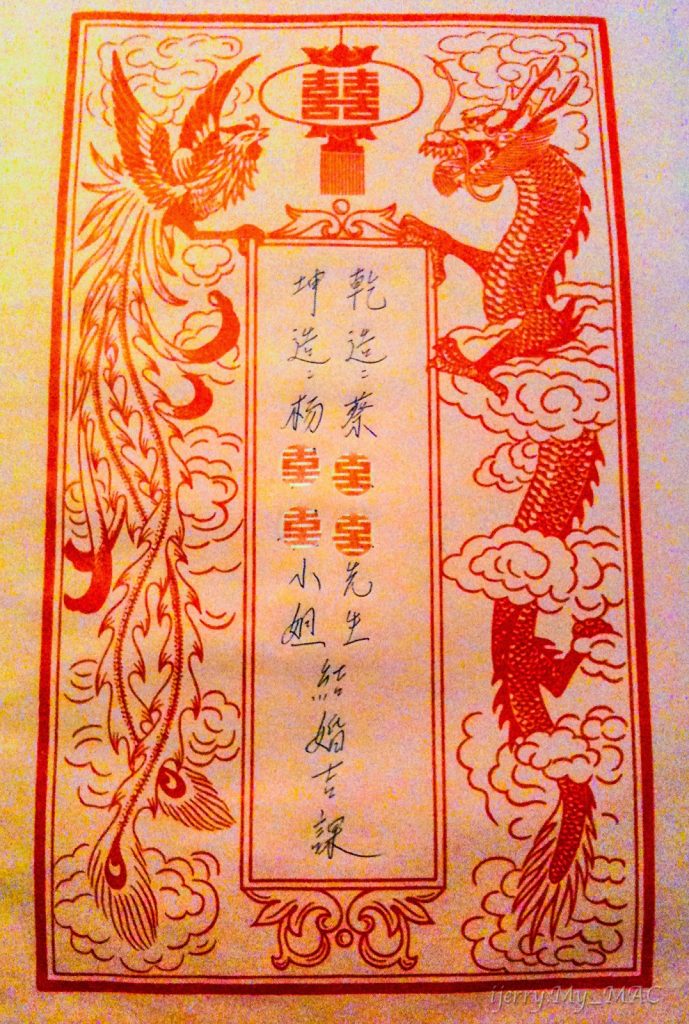 囍
乾造：蔡囍囍先生
坤造：杨囍囍小姐
結婚吉課
ijerry:My_MAC